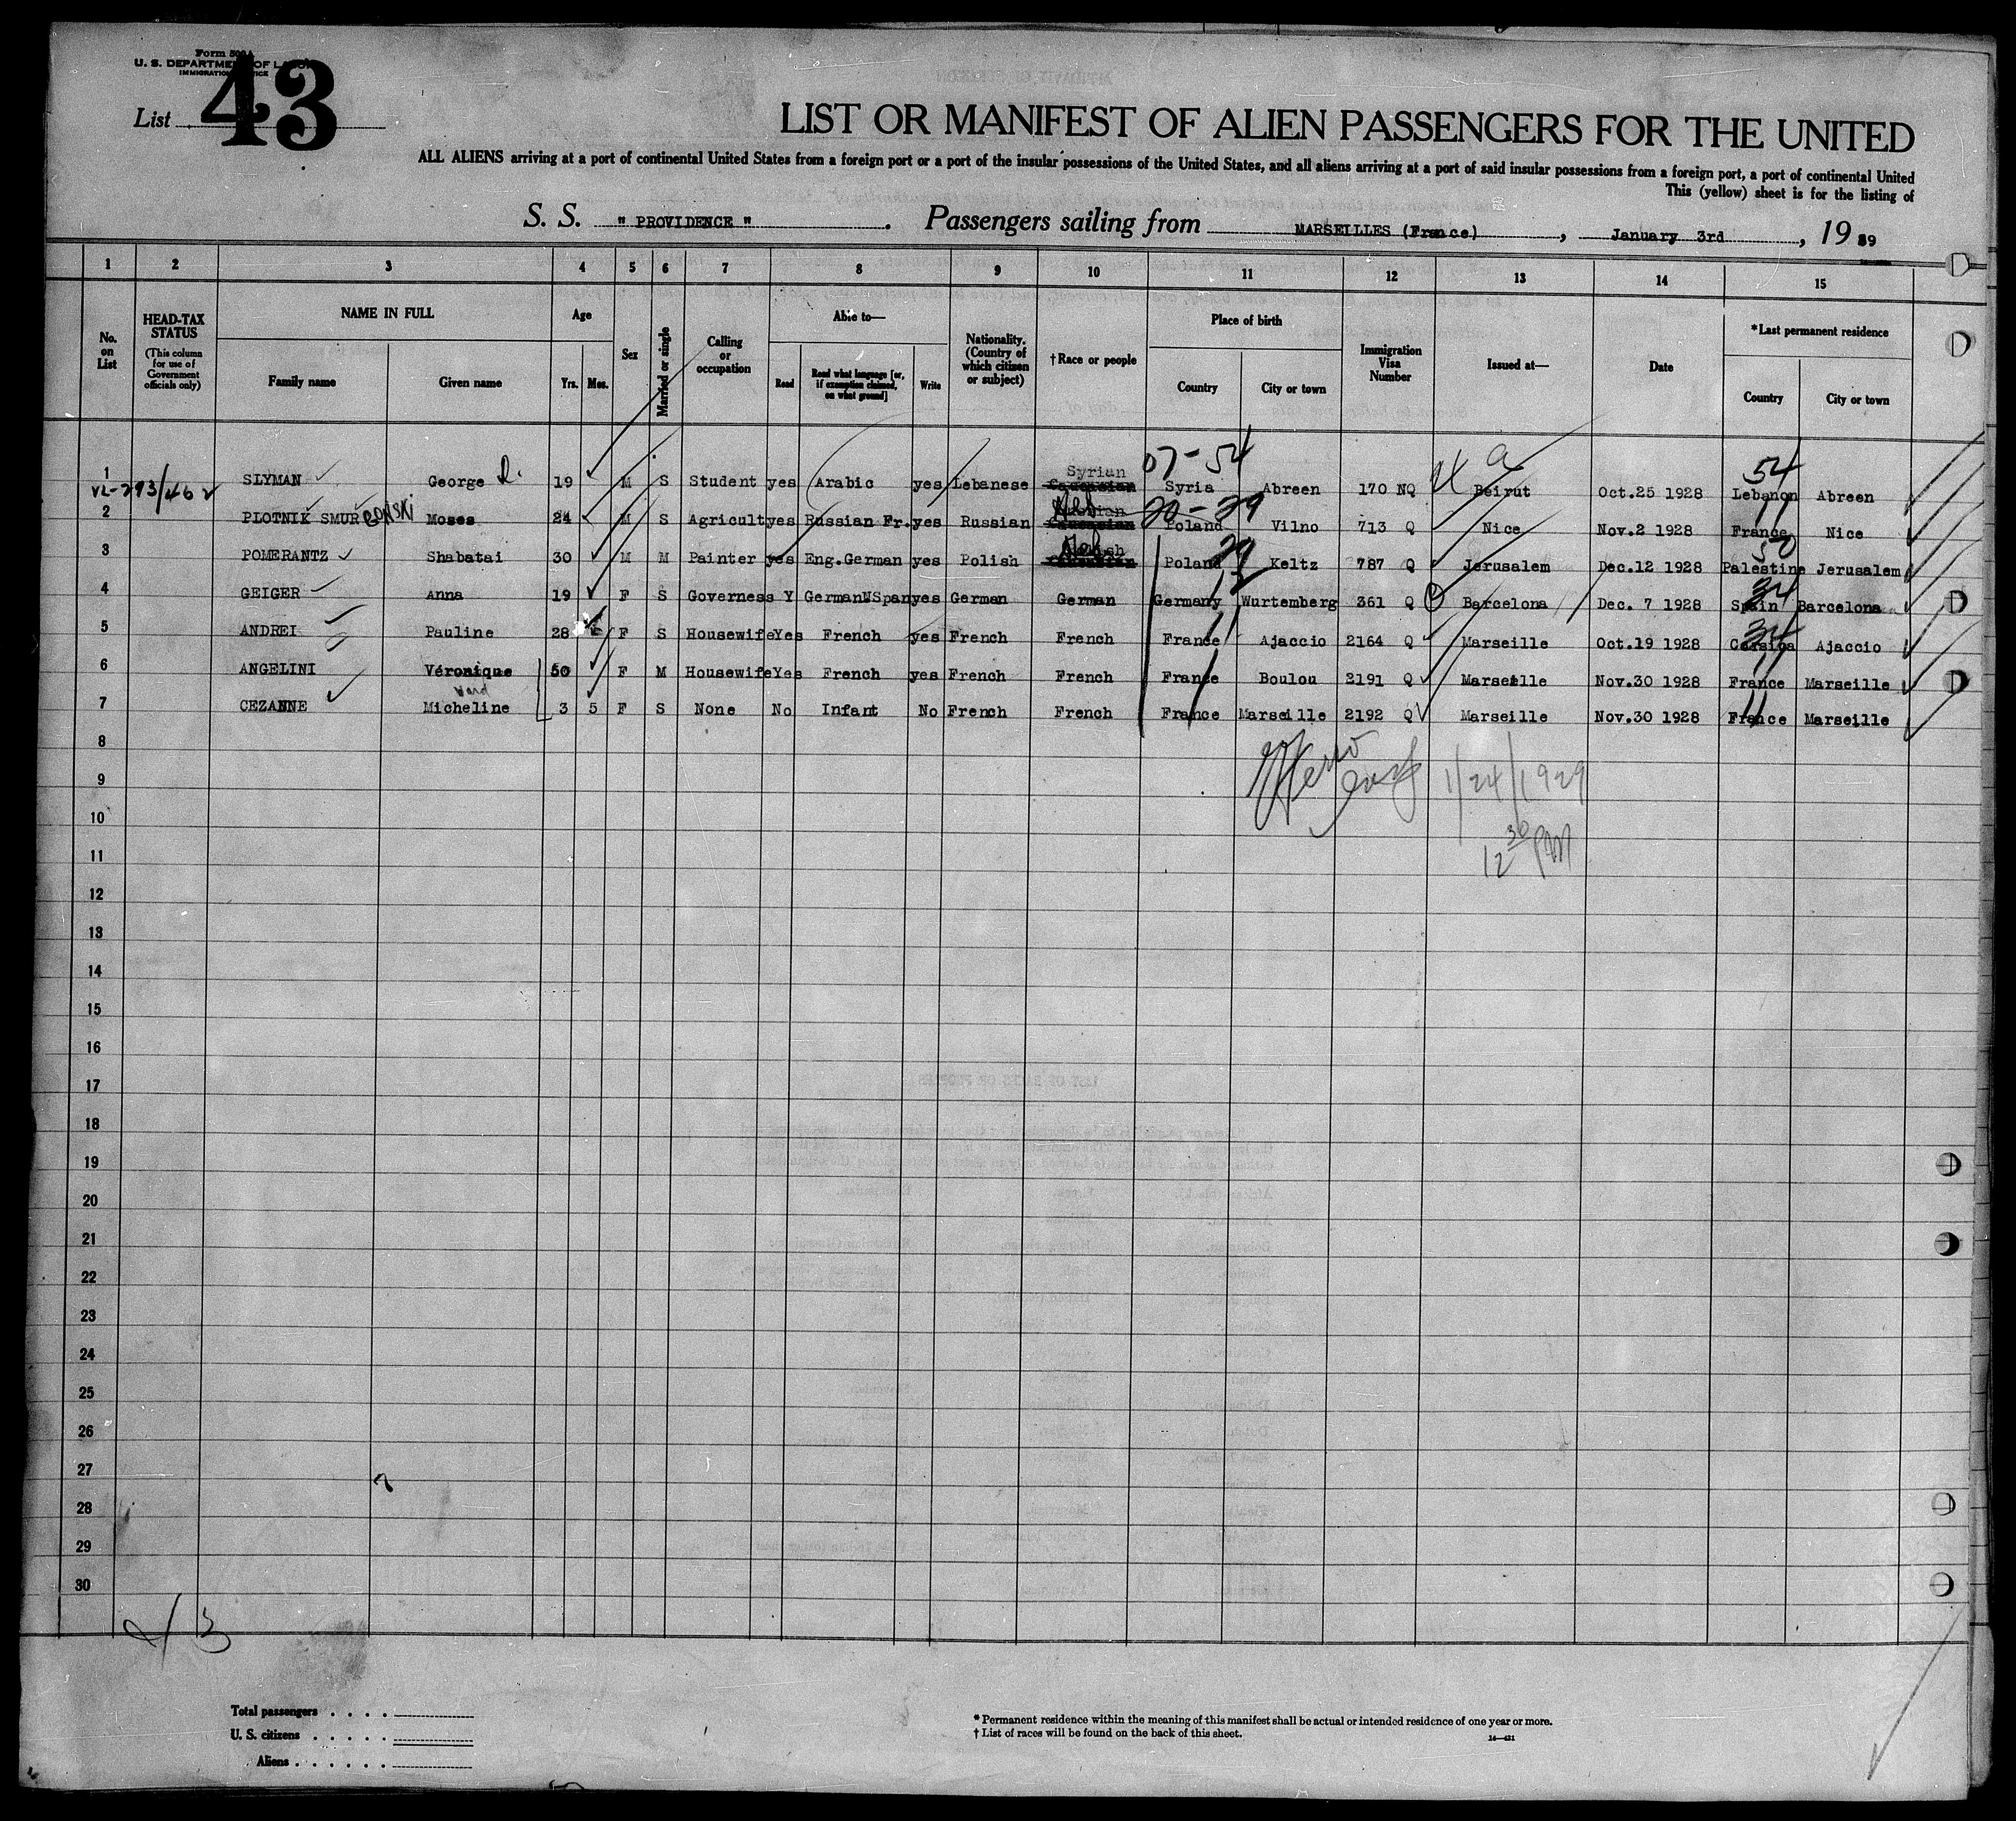 Form 500A
U. S. DEPARTMENT OF LABOR
IMMIGRATION SERVICE
List 43
LIST OR MANIFEST OF ALIEN PASSENGERS FOR THE UNITED
ALL ALIENS arriving at a port of continental United States from a foreign port or a port of the insular possessions of the United States, and all aliens arriving at a port of said insular possessions from a foreign port, a port of continental United
This (yellow) sheet is for the listing of
S. S. " PROVIDENCE ". Passengers sailing from MARSEILLES (France), January 3rd, 19 29
1 2 3 4 5 6 7 8 9 10 11 12 13 14 15
No. on List
HEAD-TAX STATUS (This column for use of Government officials only)
NAME IN FULL Family name Given name
Age Yrs. Mos.
Sex
Married or single
Calling or occupation
Able to— Read Read what language [or, if exemption claimed, on what ground] Write
Nationality. (Country of which citizen or subject)
†Race or people
Place of birth Country City or town
Immigration Visa Number
Issued at—
Date
*Last permanent residence Country City or town
07-54 a 54
1 SLYMAN George D. 19 M S Student yes Arabic yes Lebanese Syrian Caucasian Syria Abreen 170 NQ Beirut Oct.25 1928 Lebanon Abreen
20-29 11
2 PLOTNIK SMURGONSKI Moses 24 M S Agricult yes Russian Fr. yes Russian Heb Caucasian Poland Vilno 713 Q Nice Nov.2 1928 France Nice
29 50
3 POMERANTZ Shabatai 30 M M Painter yes Eng.German yes Polish Heb Caucasian Poland Keltz 787 Q Jerusalem Dec.12 1928 Palestine Jerusalem
12 34
4 GEIGER Anna 19 F S Governess Y German Span yes German German Germany Wurtemberg 361 Q Barcelona Dec. 7 1928 Spain Barcelona
11
5 ANDREI Pauline 28 F S Housewife Yes French yes French French France Ajaccio 2164 Q Marseille Oct.19 1928 Corsica Ajaccio
6 ANGELINI Véronique 50 F M Housewife Yes French yes French French France Boulou 2191 Q Marseille Nov.30 1928 France Marseille
7 CEZANNE Micheline 3 5 F S None No Infant No French French France Marseille 2192 Q Marseille Nov.30 1928 France Marseille
8
1/24/1929
9
10
12 30 PM
11
12
13
14
15
16
17
18
19
20
21
22
23
24
25
26
27
28
29
30
Total passengers
U. S. citizens
Aliens
* Permanent residence within the meaning of this manifest shall be actual or intended residence of one year or more.
† List of races will be found on the back of this sheet.
14—431